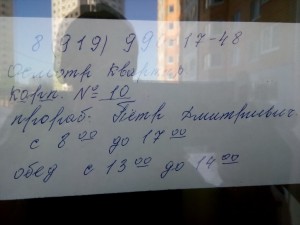 8 919) 990-17-48
Осмотр квартир
корп. № 10
прораб. Пётр Дмитриевич
с 8 00 до 17 00
обед с 13 00 до 14 00